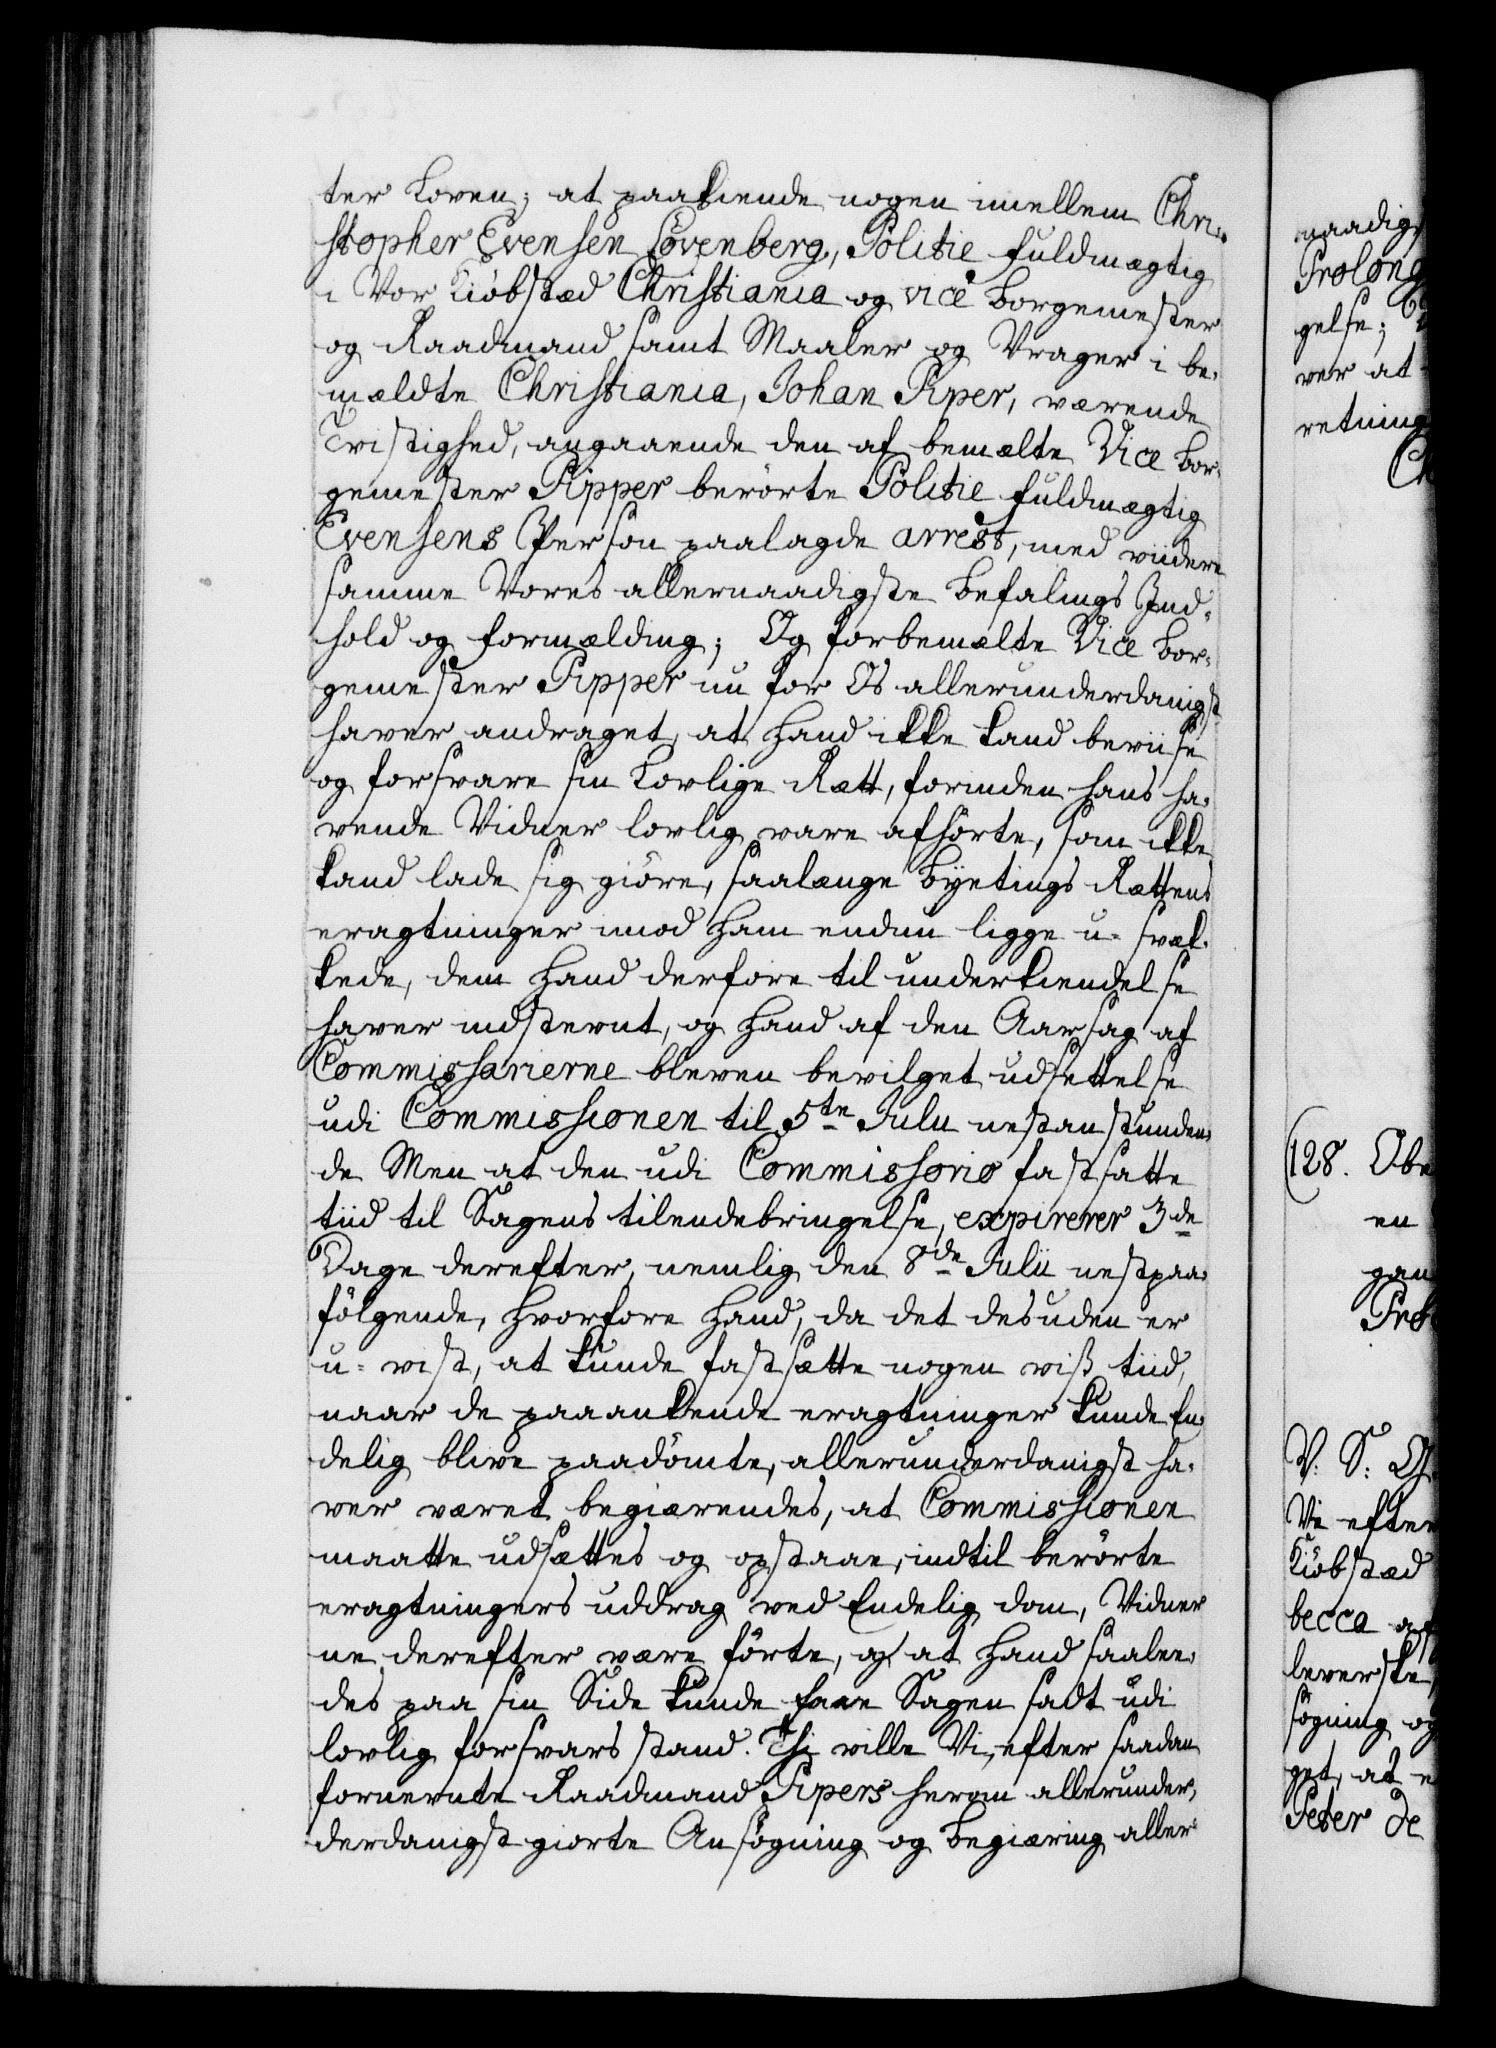 ter Loven; at paakiende nogen imellem Chri-
stopher Evensen Lövenberg, Politie fuldmægtig
i Vor Kiöbstæd Christiania og vice Borgemester
og Raadmand samt Maaler og Vrager i be-
mældte Christiania, Johan Piper, værende
Tvistighed, angaaende den af bemælte Vice Bor-
gemester Pipper berörte Politie fuldmægtig
Evensens Person paalagde arrest, med viidere
samme Vores allernaadigste Befalings Ind-
hold og formælding; Og forbemælte Vice Bor-
gemester Pipper nu for Os allerunderdanigst
haver andraget, at Hand ikke kand beviise
og forsvare sin Lovlige Rætt, forinden hans ha-
vende Vidner lovlig vare afhörte, som ikke
kand lade sig giöre, saalænge Byetings Rættens
eragtninger imod Ham endnu ligge u-svæk-
kede, dem Hand derfore til underkiendelse
haver indstevnt, og Hand af den Aarsag af
Commissarierne bleven bevilget udsettelse
udi Commissionen til 5te Julii nestanstunden-
de Men at den udi Commissorio fastsatte
tiid til Sagens tilendebringelse, expirerer 3de
Dage derefter, nemlig den 8de Julii nestpaa-
fölgende, hvorfore Hand, da det desuden er
u-vist, at kunde fastsætte nogen viss tiid,
naar de paaankende eragtninger kunde En-
delig blive paadömte, allerunderdanigst ha-
ver været begiærendes, at Commissionen
maatte udsættes og opstaae, indtil berörte
eragtningers uddrag ved Endelig dom, Vidner
ne derefter være förte, og at Hand saalee-
des paa sin Side kunde faae Sagen sadt udi
lovlig forsvars stand. Thi ville Vi, efter saadan
fornevnte Raadmand Pipers herom allerunder-
derdanigst giorte Ansögning og Begiæring aller-
naadig
Prolong
gelse;
ver at
retning
(128. Obe
en
gan
V: S: G.
Vi efter
Kiöbstæd
becca af
leverske
sögning og
get, at e
Peter de